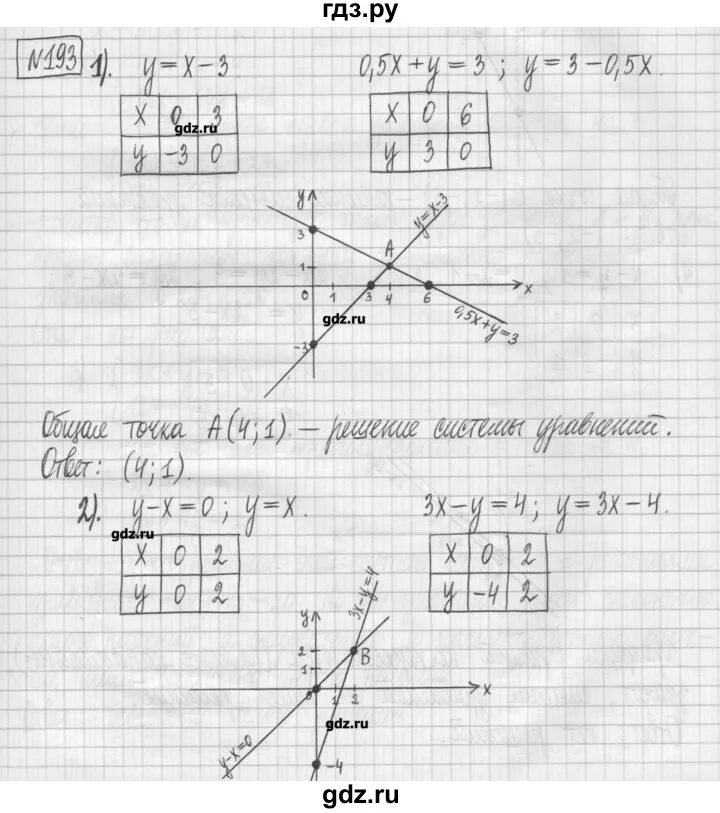 гдз.ру
№193 1). y = x − 3 0,5x + y = 3 ; y = 3 − 0,5x.
x 0 3 x 0 6
gdz.ru
y −3 0 y 3 0
y
y=x−3
3
A
1
0 1 3 4 6 x
gdz.ru
0,5x+y=3
−3
Общая точка A(4;1) − решение системы уравнений.
Ответ: (4;1).
2). y−x=0; y=x. 3x−y=4; y=3x−4.
gdz.ru
x 0 2 x 0 2
y 0 2 y −4 2
3x−y=4
y
2
B
1
0 1 2 x
gdz.ru
y−x=0
−4
gdz.ru